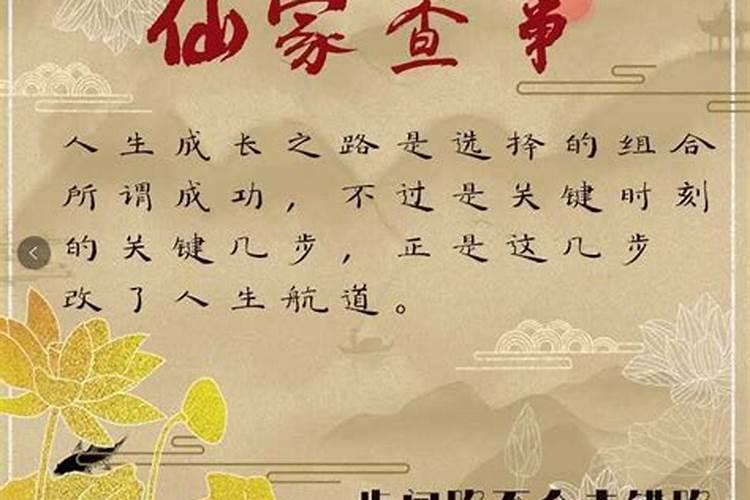 仙家查事
人生成长之路是选择的组合
所谓成功，不过是关键时刻
的关键几步，正是这几步
改了人生航道。